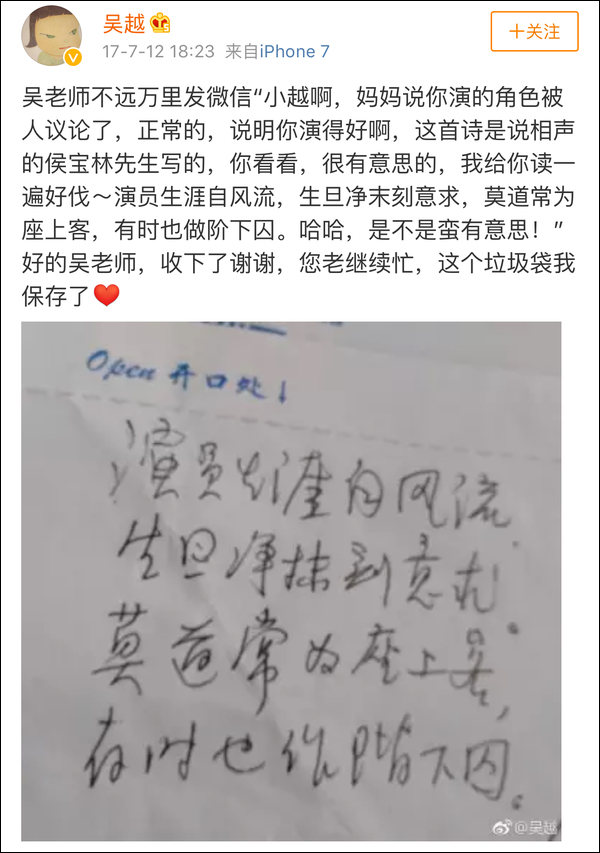 吴越
17-7-12 18:23 来自iPhone 7
+关注
吴老师不远万里发微信“小越啊，妈妈说你演的角色被
人议论了，正常的，说明你演得好啊，这首诗是说相声
的侯宝林先生写的，你看看，很有意思的，我给你读一
遍好伐～演员生涯自风流，生旦净末刻意求，莫道常为
座上客，有时也做阶下囚。哈哈，是不是蛮有意思！”
好的吴老师，收下了谢谢，您老继续忙，这个垃圾袋我
保存了❤️
Open 开口处↓
演员生涯自风流
生旦净抹刻意求。
莫道常为座上客，
有时也作阶下囚。
@吴越